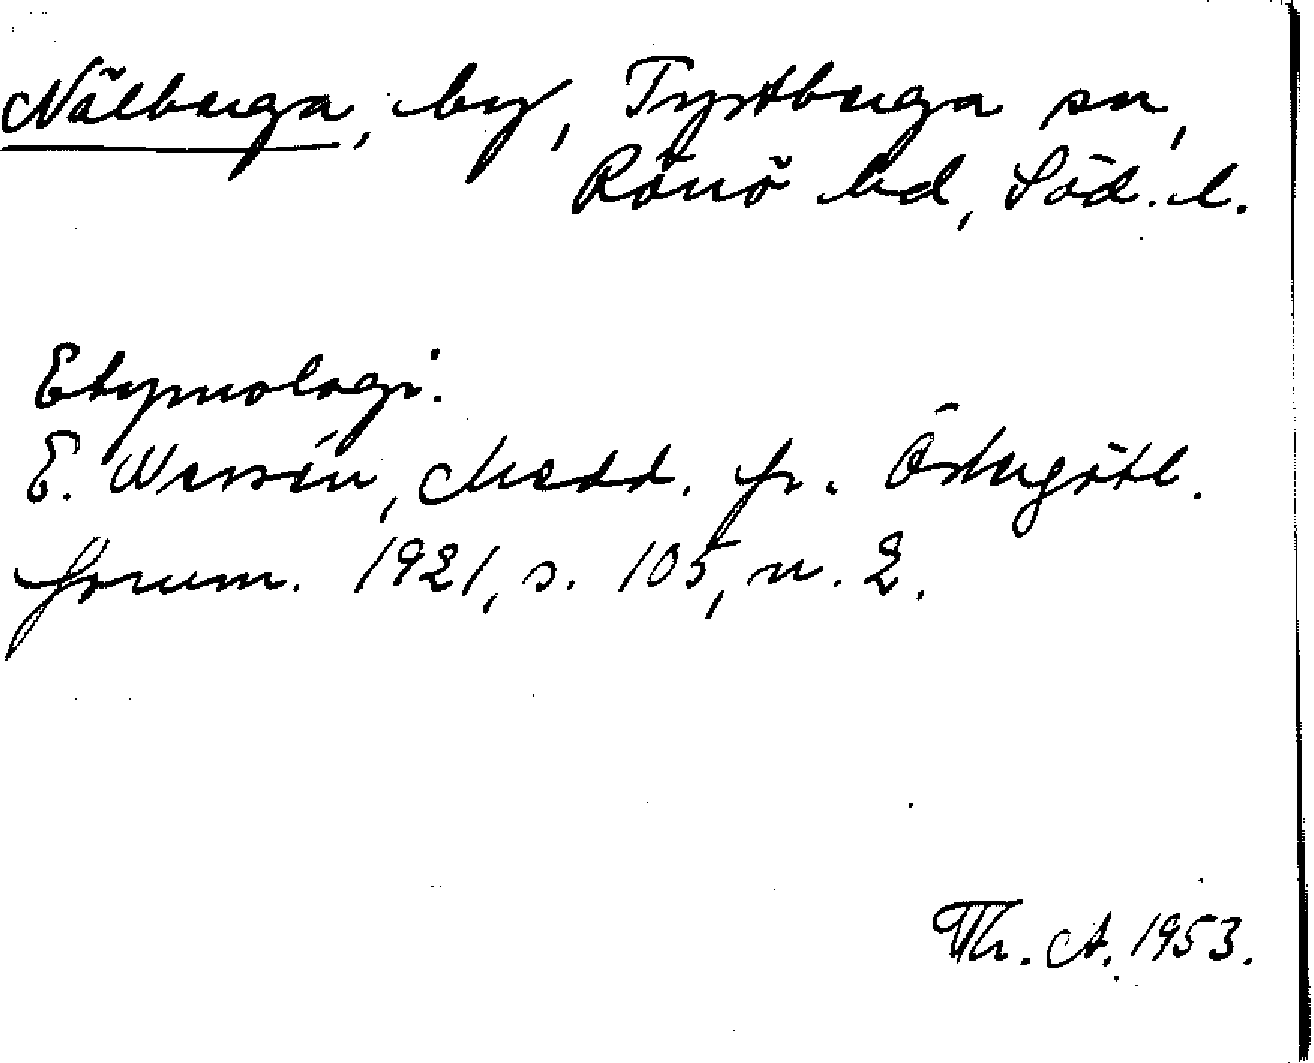 Nälberga, by, Tystberga sn,
Rönö hd, Söd. l.
Etymologi.
E. Wessén, Medd. fr. Östergötl.
fornm. 1921, s. 105, n. 2.
Th. A. 1953.